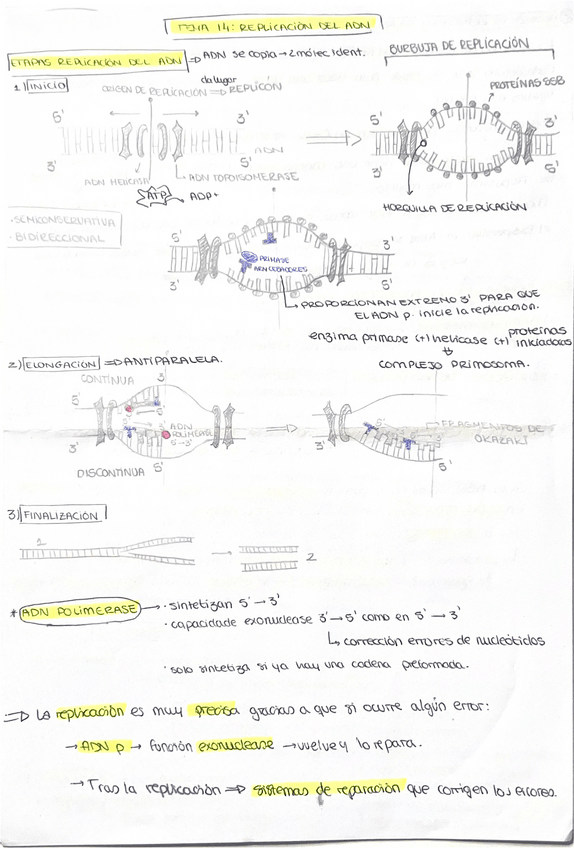 TEMA 14: REPLICACIÓN DEL ADN
ETAPAS REPLICACIÓN DEL ADN ⇒ ADN se copia → 2 moléc ident.
BURBUJA DE REPLICACIÓN
1) INICIO
da lugar
ORIGEN DE REPLICACIÓN ⇒ REPLICÓN
PROTEÍNAS SSB
5' 3' 5' 3'
ADN
3' 5' 3' 5'
ADN HELICASA
ADN TOPOISOMERASE
ATP ADP+
HORQUILLA DE REPLICACIÓN
·SEMICONSERVATIVA
·BIDIRECCIONAL
5' 3'
PRIMASE
ARN CEBADORES
3' 5'
PROPORCIONAN EXTREMO 3' PARA QUE
EL ADN p. inicie la replicación.
enzima primase (+) helicase (+) proteínas iniciadoras
COMPLEJO PRIMOSOMA.
2) ELONGACIÓN ⇒ ANTIPARALELA.
CONTINUA 3'
5'
ADN
POLIMERASE
5'→3'
FRAGMENTOS DE
OKAZAKI
3'
DISCONTINUA 5' 5'
3) FINALIZACIÓN
1
2
* ADN POLIMERASE → · sintetizan 5' → 3'
· capacidade exonuclease 3' → 5' como en 5' → 3'
↳ corrección errores de nucleótidos
· solo sintetiza si ya hay una cadena preformada.
⇒ La replicación es muy precisa gracias a que si ocurre algún error:
→ ADN p → función exonuclease → vuelve y lo repara.
→ Tras la replicación ⇒ sistemas de reparación que corrigen los errores.